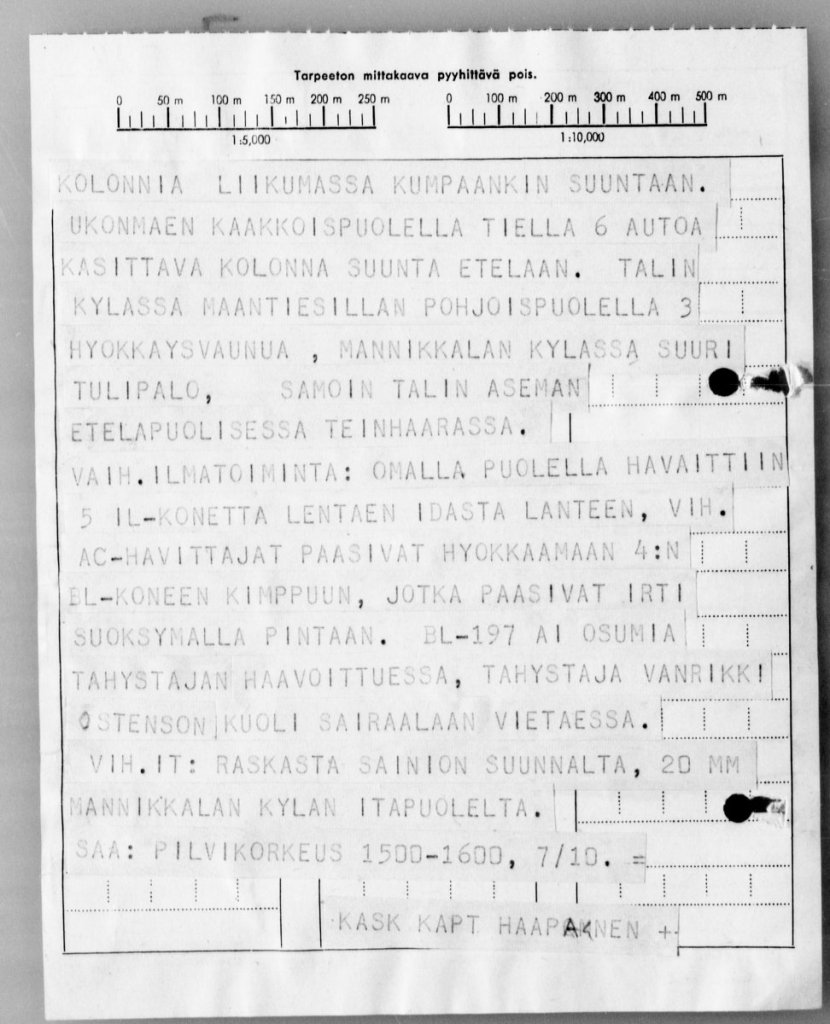 Tarpeeton mittakaava pyyhittävä pois.
0 50 m 100 m 150 m 200 m 250 m 0 100 m 200 m 300 m 400 m 500 m
1:5,000 1:10,000
KOLONNIA LIIKUMASSA KUMPAANKIN SUUNTAAN.
UKONMAEN KAAKKOISPUOLELLA TIELLA 6 AUTOA
KASITTAVA KOLONNA SUUNTA ETELAAN. TALIN
KYLASSA MAANTIESILLAN POHJOISPUOLELLA 3
HYOKKAYSVAUNUA , MANNIKKALAN KYLASSA SUURI
TULIPALO, SAMOIN TALIN ASEMAN
ETELAPUOLISESSA TEINHAARASSA.
VAIH.ILMATOIMINTA: OMALLA PUOLELLA HAVAITTIIN
5 IL-KONETTA LENTAEN IDASTA LANTEEN, VIH.
AC-HAVITTAJAT PAASIVAT HYOKKAAMAAN 4:N
BL-KONEEN KIMPPUUN, JOTKA PAASIVAT IRTI
SUOKSYMALLA PINTAAN. BL-197 AI OSUMIA
TAHYSTAJAN HAAVOITTUESSA, TAHYSTAJA VANRIKKI
OSTENSON KUOLI SAIRAALAAN VIETAESSA.
VIH.IT: RASKASTA SAINION SUUNNALTA, 20 MM
MANNIKKALAN KYLAN ITAPUOLELTA.
SAA: PILVIKORKEUS 1500-1600, 7/10. =
KASK KAPT +